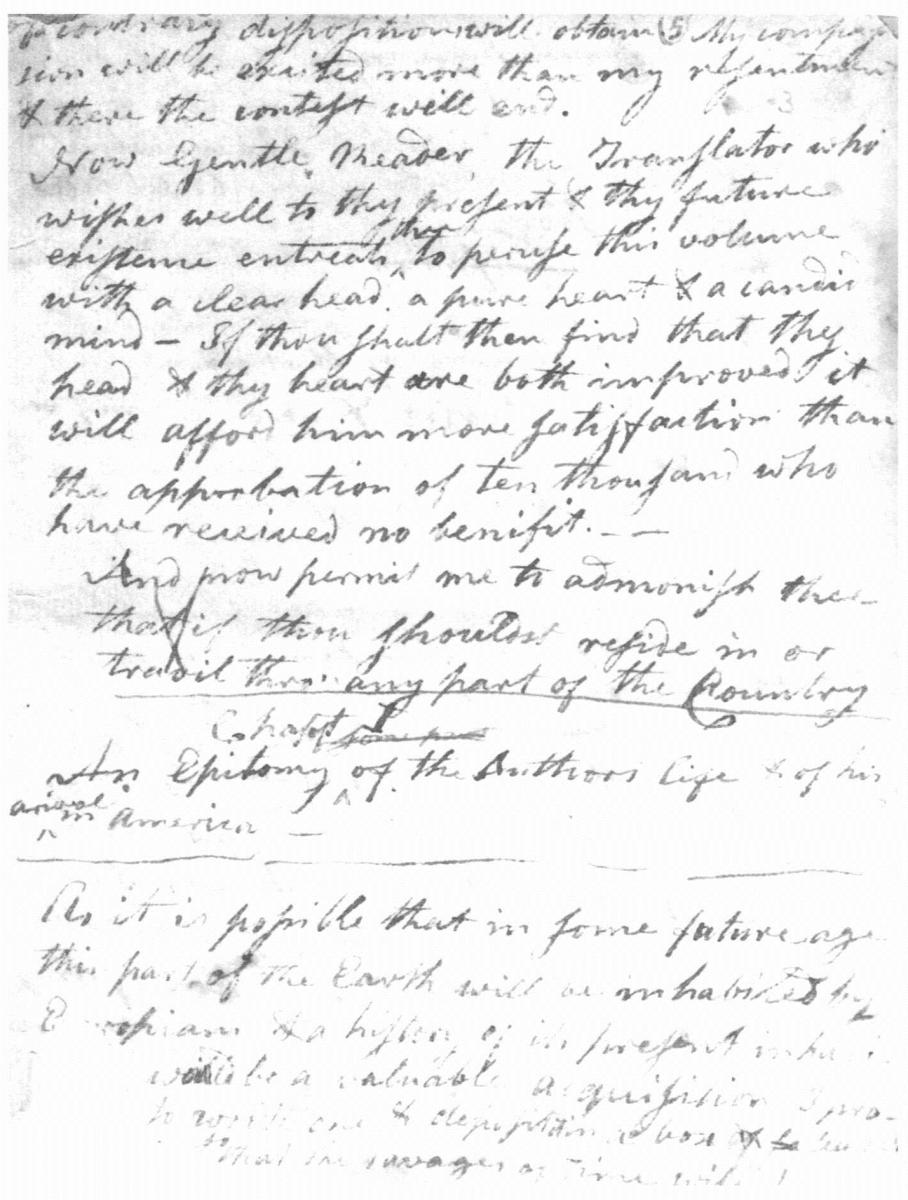 a contrary disposition will obtain (5) My compas
sion will be excited more than my resentment
& there the contest will end.
Now Gentle Reader, the Translator who
wishes well to thy present & thy future
existence entreats thee to peruse this volume
with a clear head, a pure heart & a candid
mind — If thou shalt then find that thy
head & thy heart are both improved it
will afford him more satisfaction than
the approbation of ten thousand who
have received no benifit. — —
And now permit me to admonish thee
that if thou shouldst reside in or
travil thro' any part of the Country
Chapt I
An Epitomy of the Authors Life & of his
arival in America —
As it is possible that in some future age
this part of the Earth will be inhabited by
Europians & a history of its present
would be a valuable acquisition I pro-
to write one & deposit it in a box
so that the ravages of time will